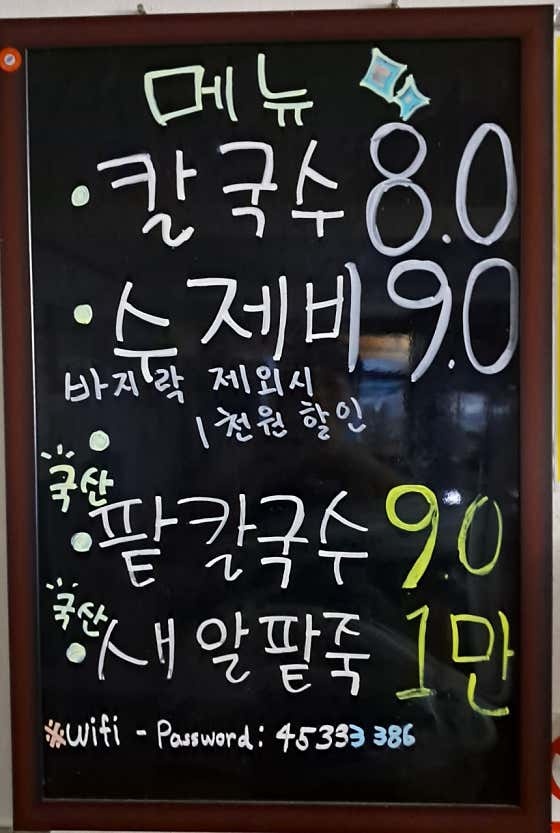 메뉴
• 칼국수 8.0
• 수제비 9.0
바지락 제외시
1천원 할인
•
국산
• 팥칼국수 9.0
국산
• 새알팥죽 1만
※Wifi - Password: 45333 386